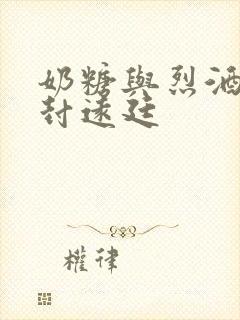 奶糖與烈酒
封遠廷
權律